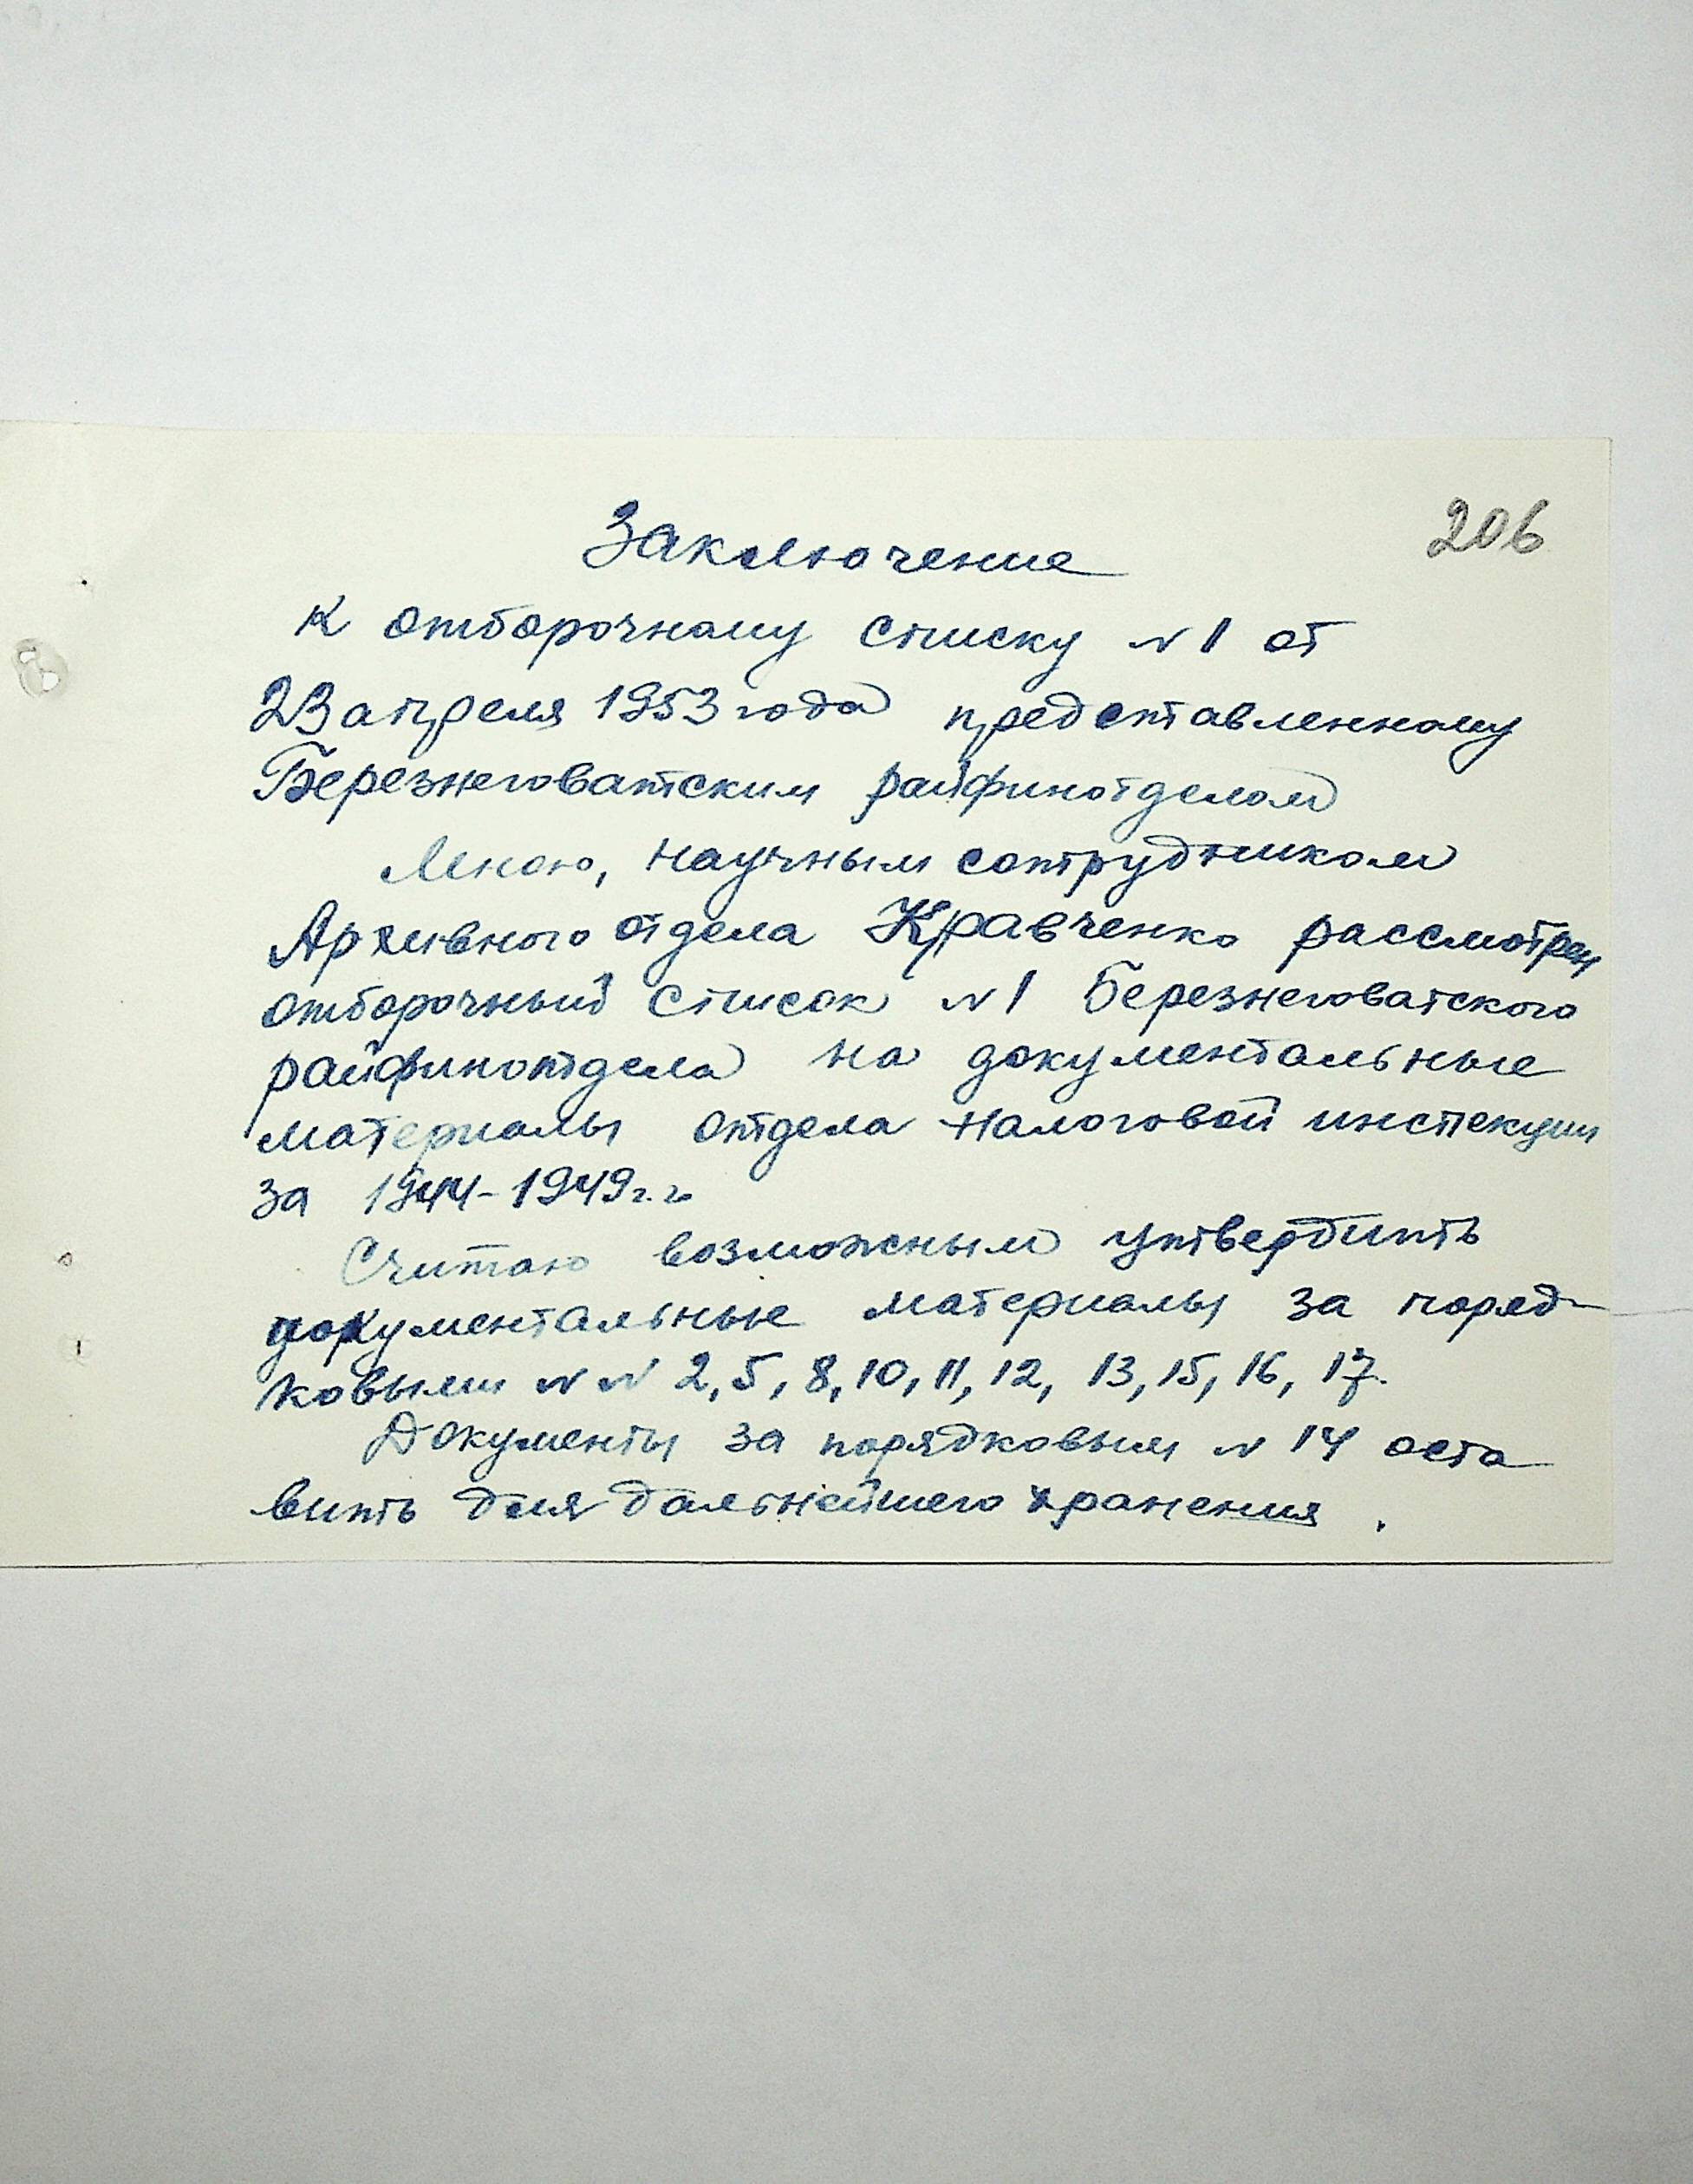 206
Заключение
к отборочному списку №1 от
23 апреля 1953 года представленному
Березнеговатским райфинотделом
Мною, научным сотрудником
Архивного отдела Кравченко рассмотрен
отборочный список №1 Березнеговатского
райфинотдела на документальные
материалы отдела налоговой инспекции
за 1944-1949г.г.
Считаю возможным утвердить
документальные материалы за поряд-
ковыми №№ 2, 5, 8, 10, 11, 12, 13, 15, 16, 17.
Документы за порядковым № 14 оста
вить для дальнейшего хранения.